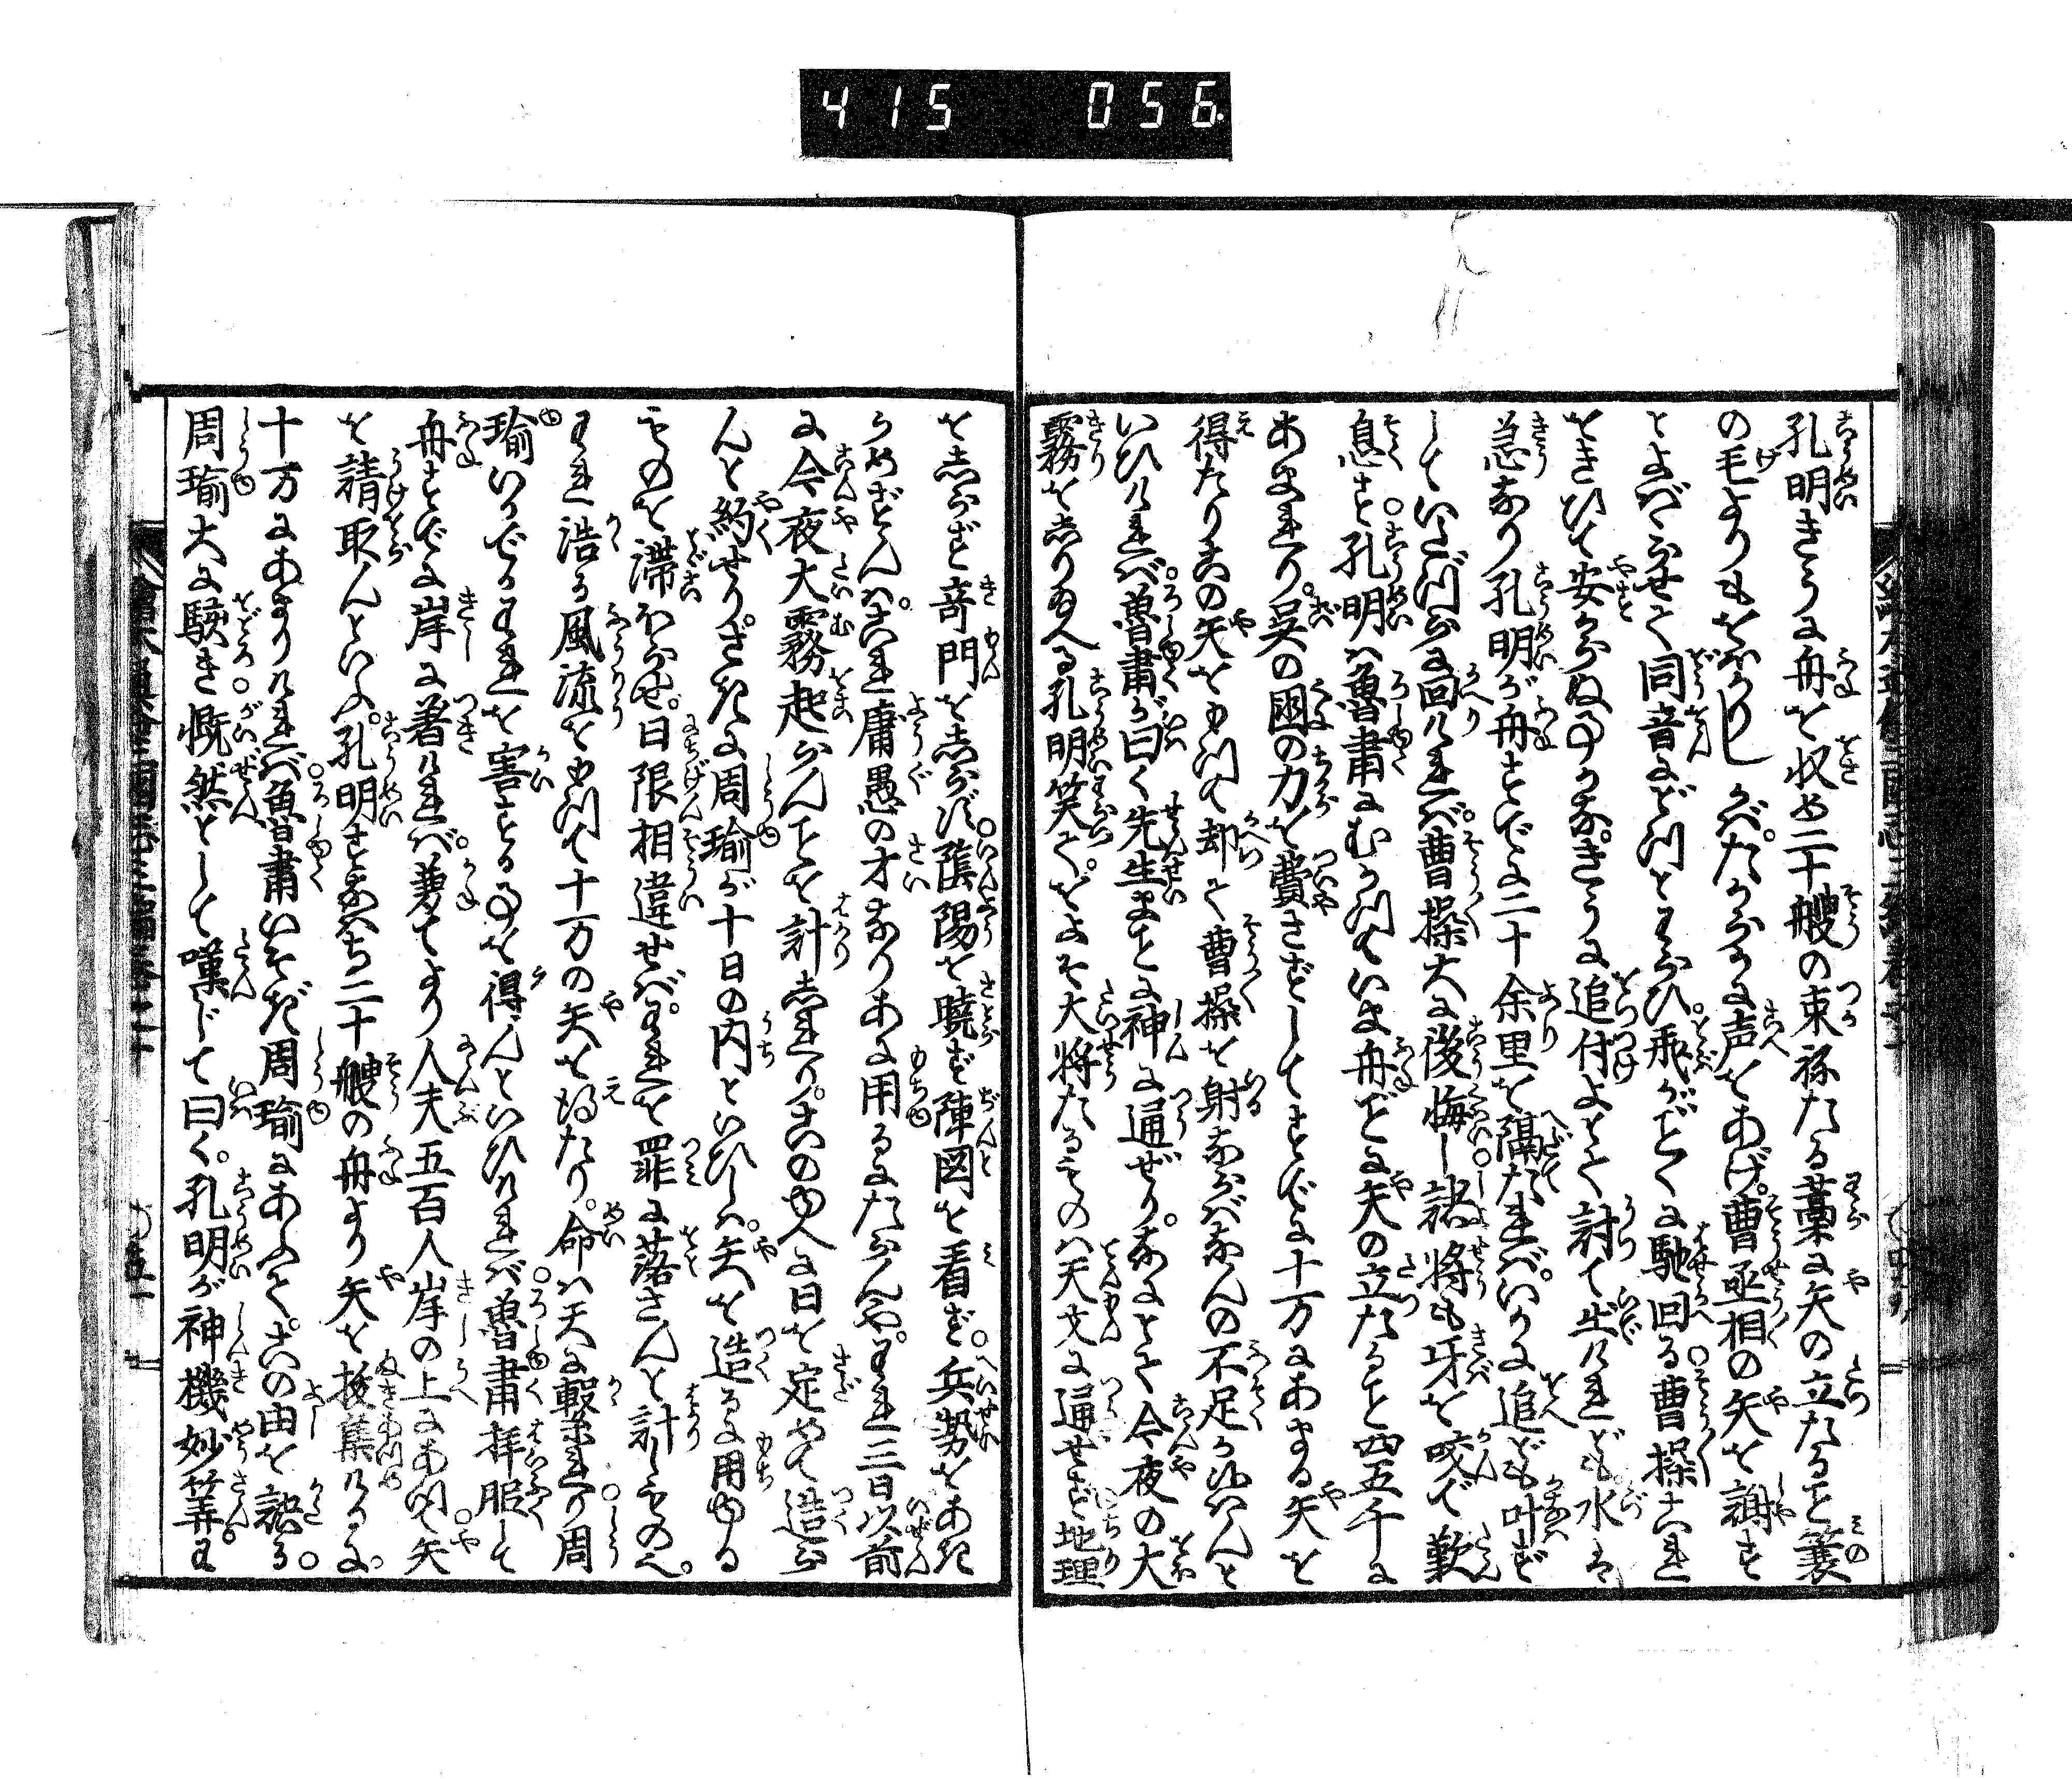 415 056
孔明きうに舟を収め二十艘の束祢たる藁に矢の立たること簑
の毛よりもをほかりしかバ。たからかに声をあげ。曹丞相の矢を謝す
とよバゝらせて同音にどつとわらひ。飛がごとくに馳回る曹操これ
をきひて安からぬ事かな。きうに追付よとて討て出けれども水は
急なり孔明が舟すでに二十余里を隔たれバ。いかに追ども叶ず
していたづらに回けれバ。曹操大に後悔し諸将も牙を咬で歎
息す孔明ハ魯粛にむかつていま舟ごとに矢の立たること四五千に
あまれり。呉の国の力を費さずしてすでに十万にあまる矢を
得たりこの矢をもつて却て曹操を射ならバなんの不足か候ハんと
いひけれバ魯粛が曰く先生まことに神に通ぜり。なにとて今夜の大
霧をしり給へる孔明笑て。およそ大将たるものハ天文に通せず地理
をしらずと奇門をしらず。陰陽を暁ず陣図を看ず。兵勢をあき
らめざらんハ。これ庸愚の才なりあに用るにたらんや。われ三日以前
に今夜大霧起らんことを計しれり。このゆへに日を定めて造ら
んと約せり。ざきに周瑜が十日の内といひしハ。矢を造るに用ゆる
ものを滞ほらせ。日限相違せバ。われを罪に落さんと計しものへ。
われ浩る風流をもつて十万の矢を得たり。命ハ天に繋れり周
瑜いかでわれを害することを得んといひけれバ魯粛拝服して
舟すでに岸に着けれバ。兼てより人夫五百人岸の上にあつて矢
を請取んといふ。孔明すなハち二十艘の舟より矢を抜集けるに。
十万にあまりけれバ魯粛いそぎ周瑜にあふて。この由を訟る。
周瑜大に駭き慨然として嘆じて曰く。孔明が神機妙筭。わ